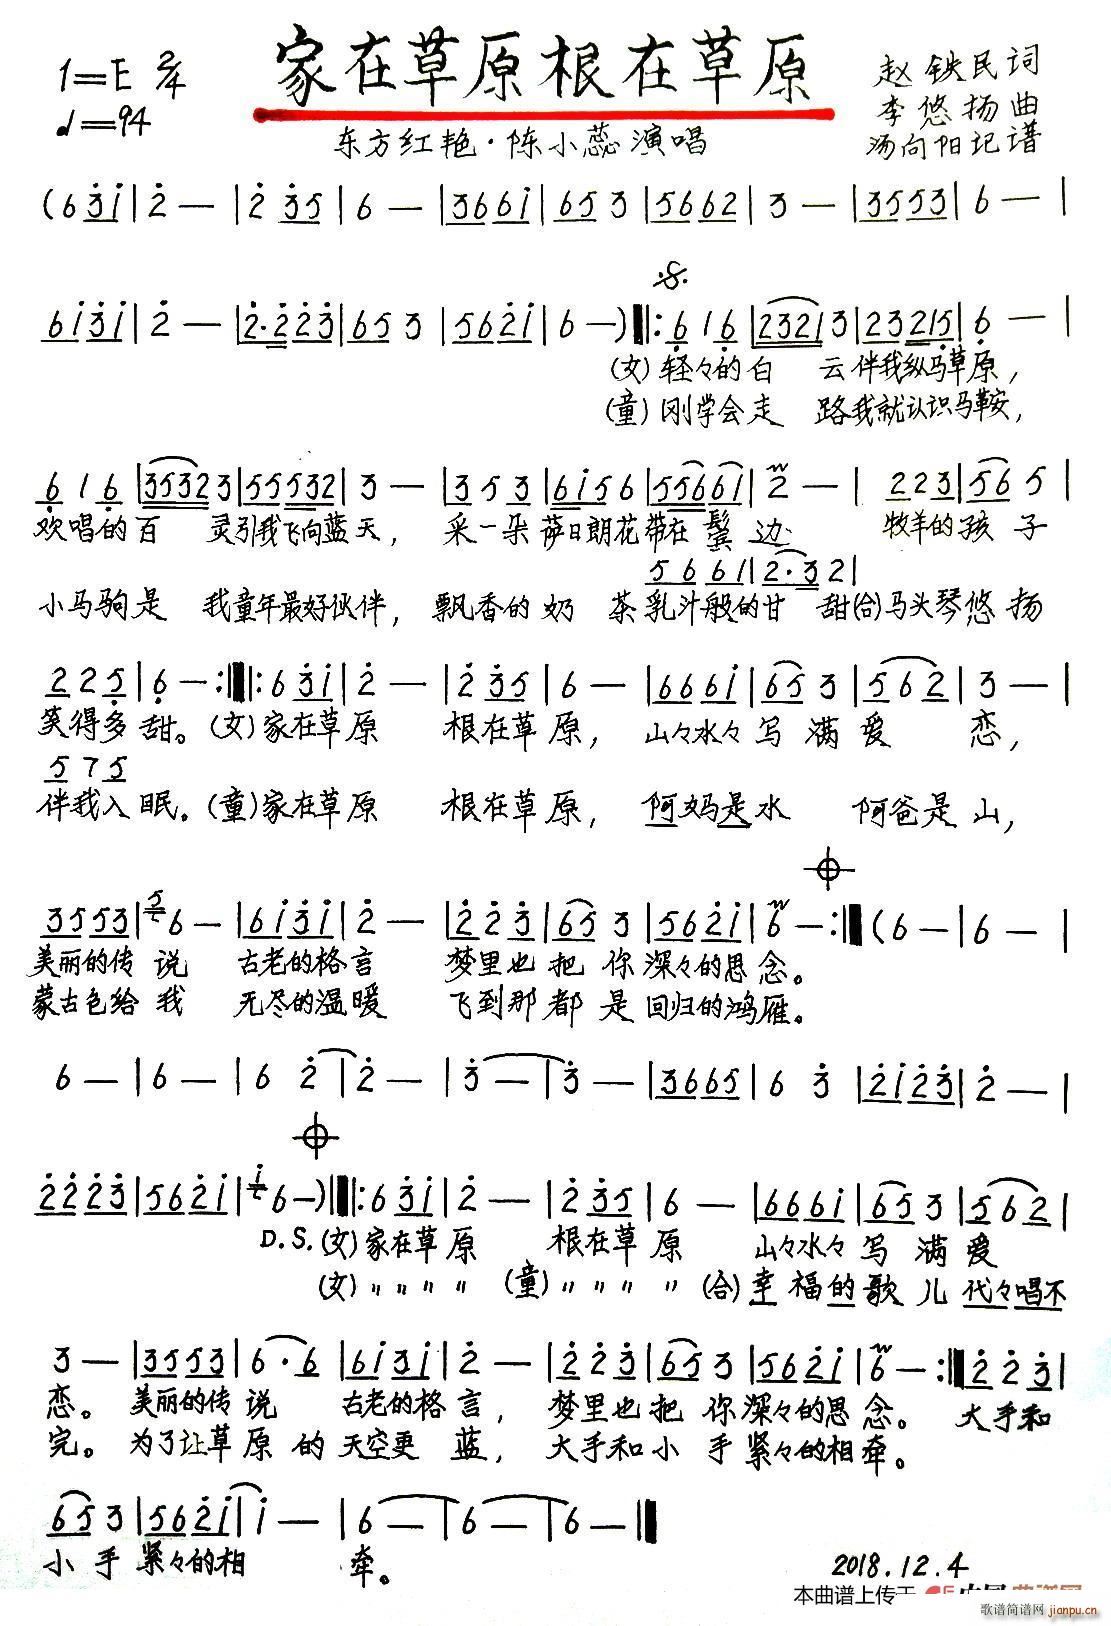 家在草原根在草原
1=E 2/4
♩=94
赵铁民词
李悠扬曲
汤向阳记谱
东方红艳·陈小蕊演唱
(6 3̇i̇ | 2̇ — | 2̇ 3̇5 | 6 — | 3661̇ | 65 3 | 5662 | 3 — | 3553 | 6 — |
61̇3̇1̇ | 2̇ — | 2̇·2̇2̇3̇ | 65 3 | 562̇1̇ | 6 —) ‖: 6̣ 1 6̣ | 2321 3 | 23215̣ | 6̣ — |
(女)轻々的白 云伴我纵马草原,
(童)刚学会走 路我就认识马鞍,
6̣ 1 6̣ | 3532 3 | 555532 | 3 — | 3 5 3 | 61̇56 | 55661̇ | 2̇ — | 2 2 3 | 56 5 |
欢唱的百 灵引我飞向蓝天, 采一朵萨日朗花带在鬓边 牧羊的孩子
5 6 61̇ | 2·3 2 |
小马驹是 我童年最好伙伴, 飘香的奶 茶乳汁般的甘 甜(合)马头琴悠扬
2 2 5̣ | 6̣ — :‖: 6 3̇1̇ | 2̇ — | 2̇ 3̇5 | 6 — | 6661̇ | 65 3 | 562 | 3 — |
笑得多甜。(女)家在草原 根在草原, 山々水々写满爱 恋,
5 7 5
伴我入眠。(童)家在草原 根在草原, 阿妈是水 阿爸是山,
3553 | 6 — | 61̇3̇1̇ | 2̇ — | 2̇ 2̇ 3̇ | 65 3 | 562̇1̇ | 6 — :‖ (6 — | 6 — |
美丽的传说 古老的格言 梦里也把你深々的思念。
蒙古包给我 无尽的温暖 飞到那都是回归的鸿雁。
6 — | 6 — | 6 2̇ | 2̇ — | 3̇ — | 3̇ — | 3665 | 6 3̇ | 2̇1̇2̇3̇ | 2̇ — |
2̇2̇2̇3̇ | 562̇1̇ | 6 —) ‖: 6 3̇1̇ | 2̇ — | 2̇ 3̇5 | 6 — | 6661̇ | 65 3 | 562 |
D.S. (女)家在草原 根在草原 山々水々写满爱
(女)〃〃〃〃 (童)〃〃〃〃 (合)幸福的歌儿代々唱不
3 — | 3553 | 6·6 | 61̇31̇ | 2̇ — | 2̇ 2̇ 3̇ | 65 3 | 562̇1̇ | 6 — :‖ 2̇ 2̇ 3̇ |
恋。美丽的传说 古老的格言, 梦里也把你深々的思念。大手和
完。为了让草原的天空更蓝, 大手和小手紧々的相牵。
65 3 | 562̇1̇ | 1̇ — | 6 — | 6 — | 6 — ‖
小手紧々的相 牵。
2018.12.4
本曲谱上传于
歌谱简谱网
jianpu.cn